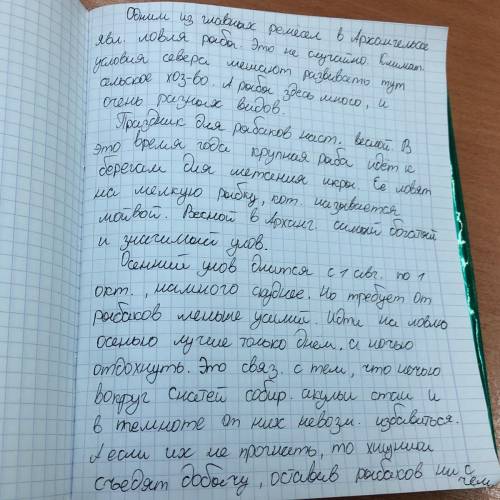 Одним из главных ремесел в Архангельске
явл. ловля рыбы. Это не случайно. Климат.
условия севера мешают развивать тут
сельское хоз-во. А рыбы здесь много, и
очень разных видов.
Праздник для рыбаков наст. весной В
это время года крупная рыба идёт к
берегам для метания икры. Ее ловят
на мелкую рыбку, кот. называется
мойвой. Весной в Арханг. самый богатый
и значимый улов.
Осенний улов длится с 1 авг. по 1
окт., намного скуднее. Но требует от
рыбаков меньше усилий. Идти на ловлю
осенью лучше только днем, а ночью
отдохнуть. Это связ. с тем, что ночью
вокруг снастей собир. акульи стаи и
в темноте от них невозм. избавиться.
А если их не прогнать, то хищники
съедят добычу, оставив рыбаков ни с
чем